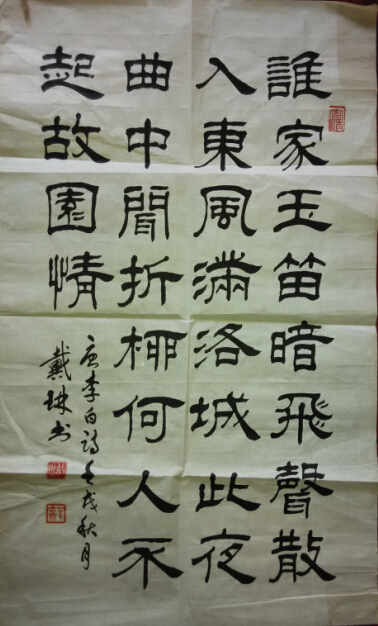 誰家玉笛暗飛聲散
入東風滿洛城此夜
曲中聞折柳何人不
起故園情
唐李白诗壬戌秋月
戴琳书